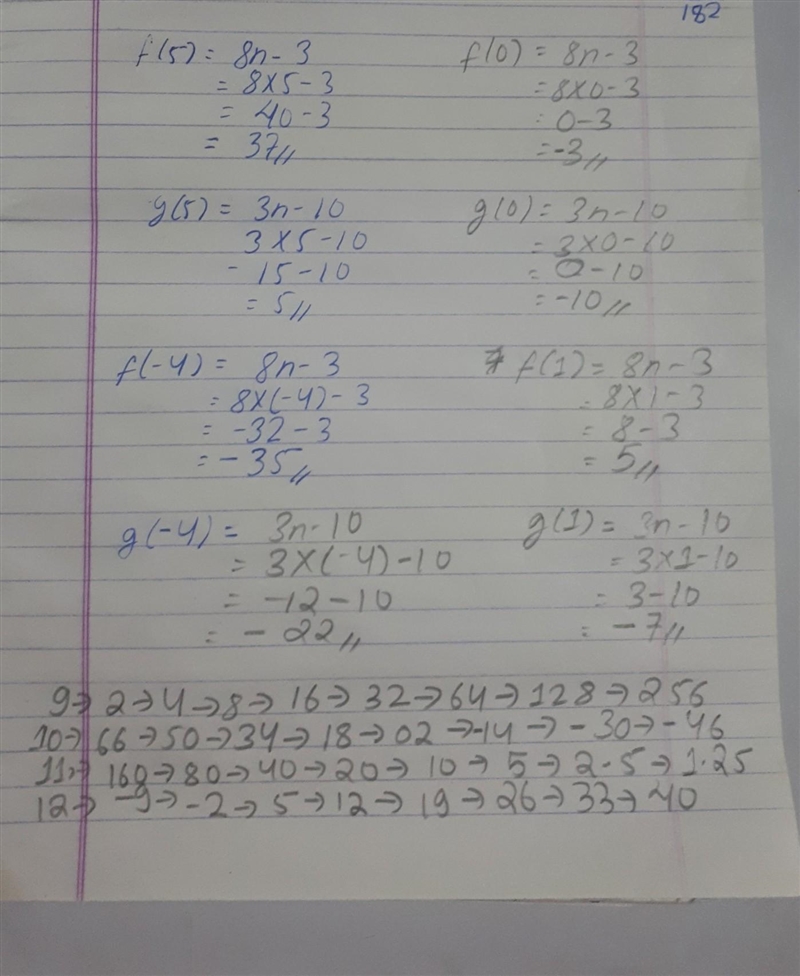 182
f(5) = 8n-3
= 8×5-3
= 40-3
= 37//
f(0) = 8n-3
=8×0-3
: 0-3
=-3//
g(5) = 3n-10
3×5-10
- 15-10
= 5//
g(0) = 3n-10
= 3×0-10
= 0-10
= -10//
f(-4) = 8n-3
= 8×(-4)-3
= -32-3
= -35//
f(1) = 8n-3
= 8×1-3
= 8-3
= 5//
g(-4) = 3n-10
= 3×(-4)-10
= -12-10
= -22//
g(1) = 3n-10
= 3×1-10
= 3-10
= -7//
9→ 2→4→8→16→32→64→128→256
10→ 66→50→34→18→02→-14→-30→-46
11→ 160→80→40→20→10→5→2.5→1.25
12→ -9→-2→5→12→19→26→33→40